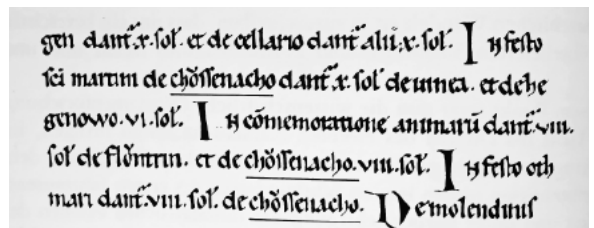 gen dant᷑.x.sol̵. et de cellario dant᷑ alii.x.sol̵. In festo
sc̄i martini de chŏssenacho dant᷑.x.sol̵ de uinea. et de he
genowo.vi.sol̵. In cōmemoratione animarū dant᷑.viii.
sol̵ de flŏntrin. et de chŏssenacho.viii.sol̵. In festo oth
mari dant᷑.viii.sol̵. de chŏssenacho. De molendinis